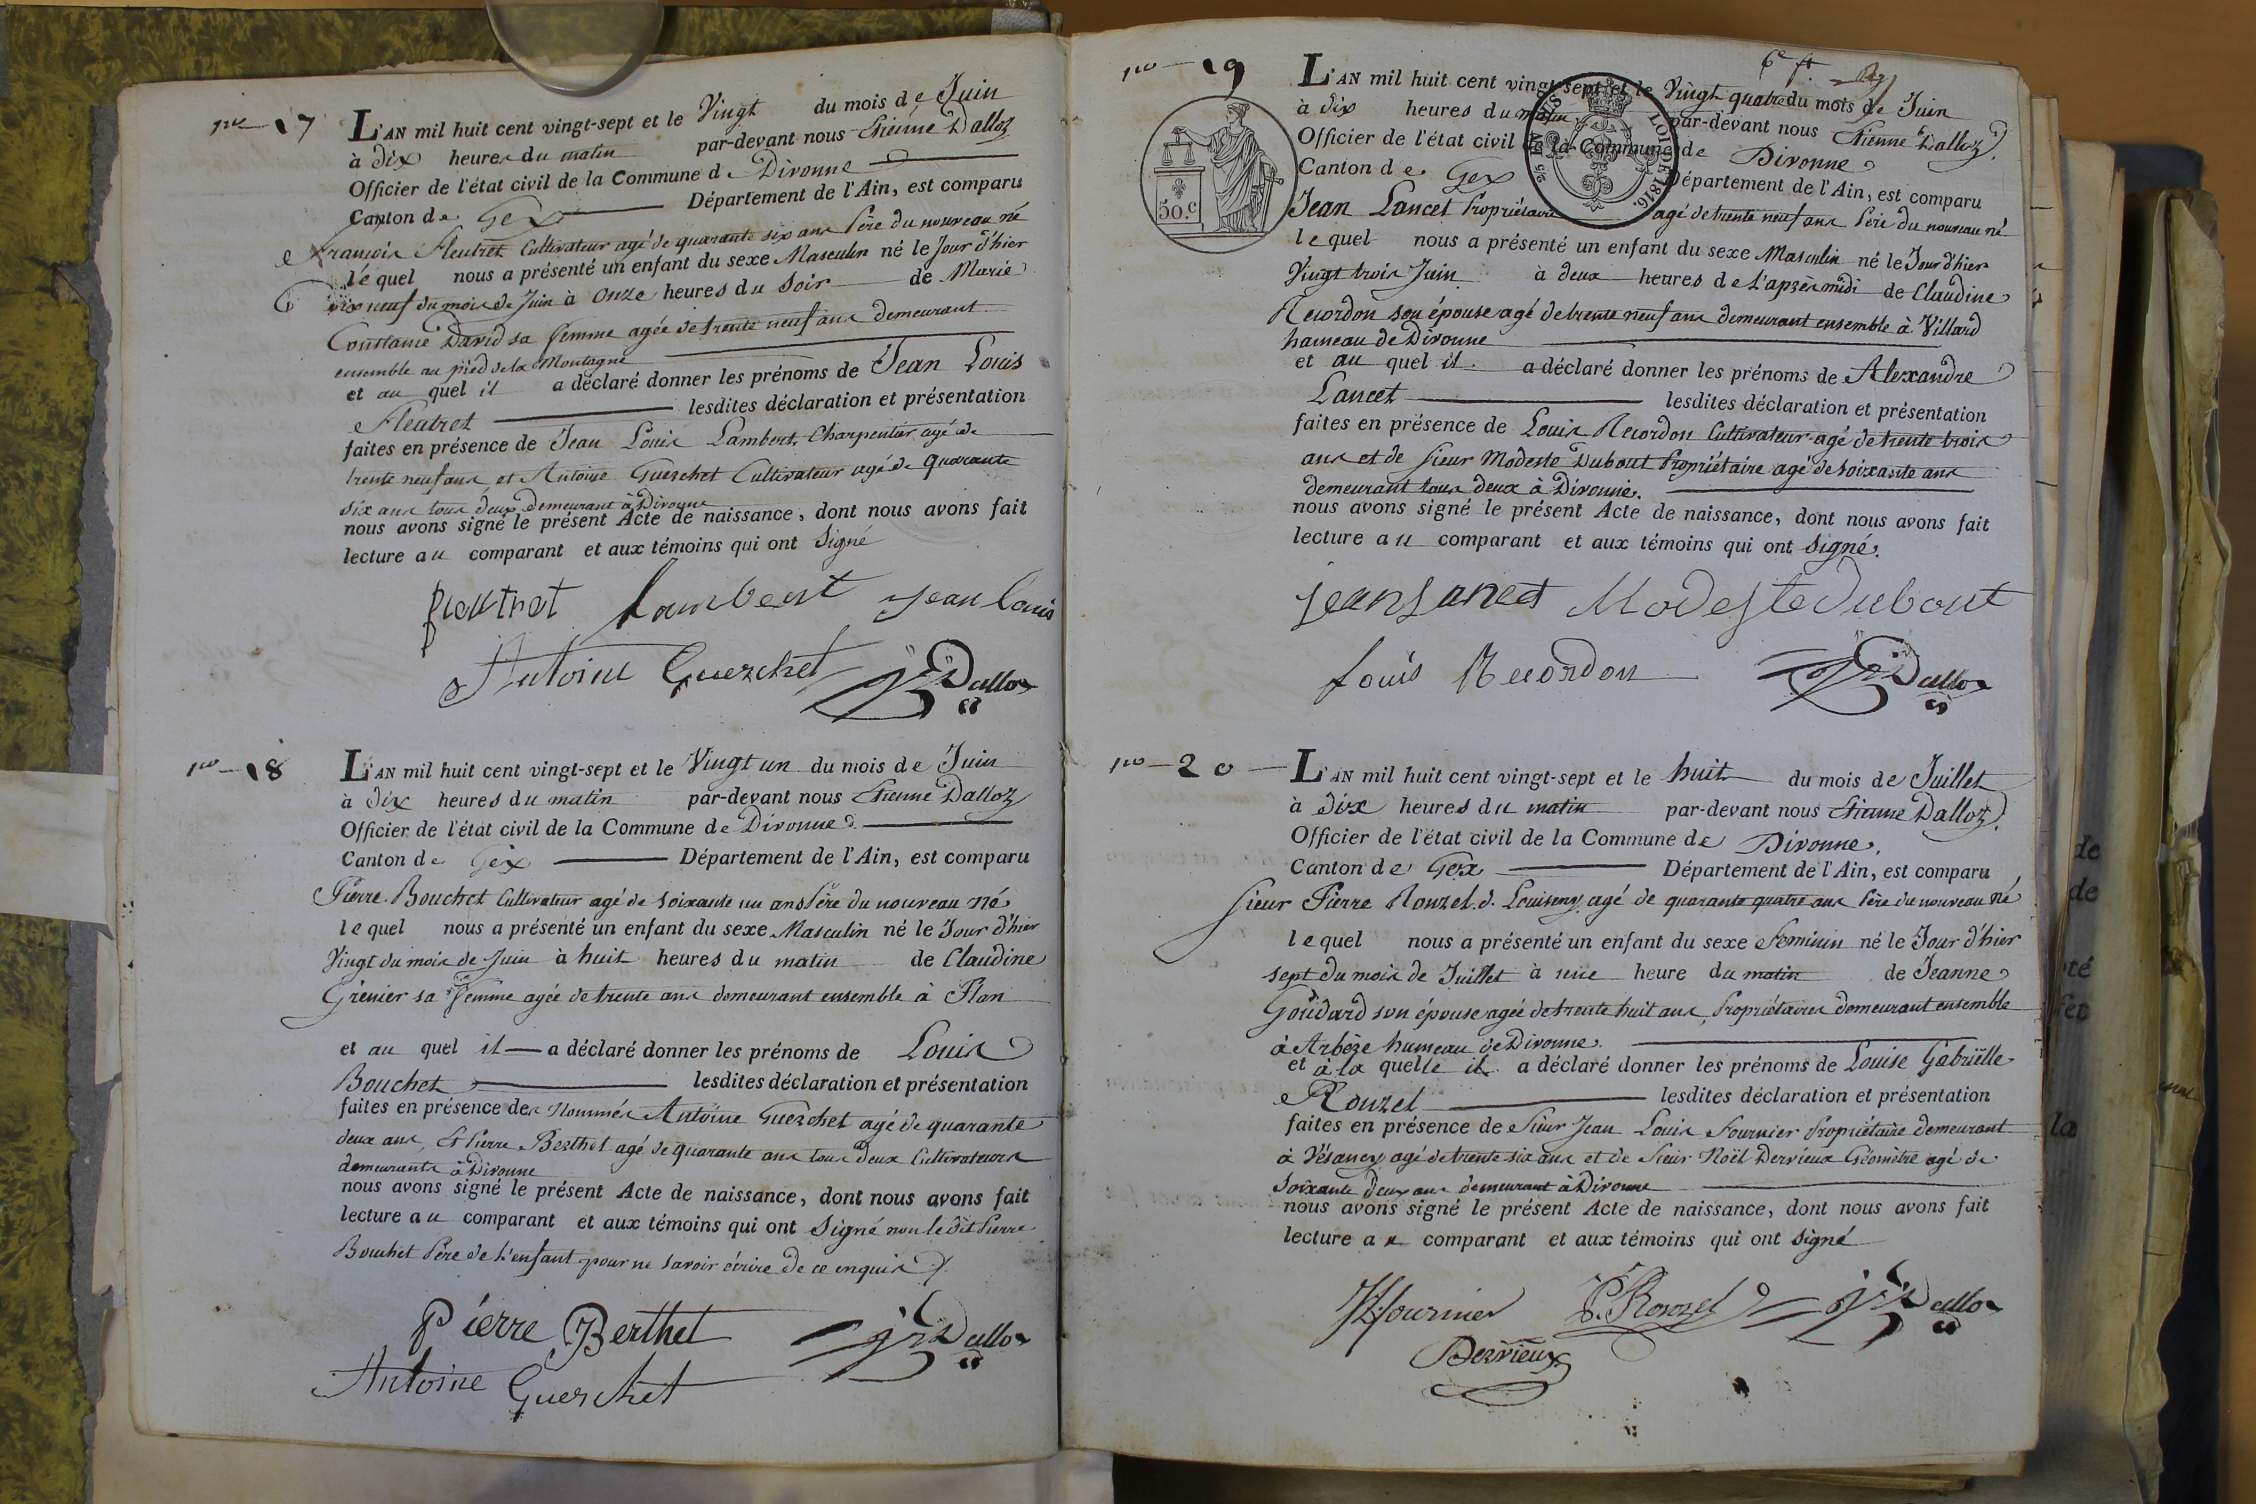 no 17
L'AN mil huit cent vingt-sept et le Vingt du mois de Juin
à dix heures du matin par-devant nous Etienne Dalloz
Officier de l'état civil de la Commune de Divonne
Canton de Gex Département de l'Ain, est comparu
François Fleutret Cultivateur agé de quarante six ans Père du nouveau né
lequel nous a présenté un enfant du sexe Masculin né le Jour d'hier
dix neuf du mois de Juin à onze heures du soir de Marie
Constance David sa femme agée de trente neuf ans demeurant
ensemble au pied de la Montagne
et au quel il a déclaré donner les prénoms de Jean Louis
Fleutret lesdites déclaration et présentation
faites en présence de Jean Louis Lambert, Charpentier agé de
trente neuf ans et Antoine Guerchet Cultivateur agé de quarante
six ans tous deux demeurant à Divonne
nous avons signé le présent Acte de naissance, dont nous avons fait
lecture au comparant et aux témoins qui ont signé
fleutret Lambert jean louis
Antoine Guerchet Dalloz
no 18
L'AN mil huit cent vingt-sept et le Vingt un du mois de Juin
à dix heures du matin par-devant nous Etienne Dalloz
Officier de l'état civil de la Commune de Divonne
Canton de Gex Département de l'Ain, est comparu
Pierre Bouchet Cultivateur agé de soixante un ans Père du nouveau né
lequel nous a présenté un enfant du sexe Masculin né le Jour d'hier
Vingt du mois de Juin à huit heures du matin de Claudine
Grenier sa femme agée de trente ans demeurant ensemble à Plan
et au quel il a déclaré donner les prénoms de Louis
Bouchet lesdites déclaration et présentation
faites en présence des Nommés Antoine Guerchet agé de quarante
deux ans, Et Pierre Berthet agé de quarante ans tous deux Cultivateurs
demeurants à Divonne
nous avons signé le présent Acte de naissance, dont nous avons fait
lecture au comparant et aux témoins qui ont signé non le dit Pierre
Bouchet Père de l'enfant pour ne savoir écrire de ce enquis
Pierre Berthet Dalloz
Antoine Guerchet
6e ft
no 19
L'AN mil huit cent vingt-sept et le Vingt quatre du mois de Juin
à dix heures du matin par-devant nous Etienne Dalloz
Officier de l'état civil de la Commune de Divonne
Canton de Gex Département de l'Ain, est comparu
50.c
EN SUS LOI DE 1816.
Jean Lancet Propriétaire agé de trente neuf ans Père du nouveau né
lequel nous a présenté un enfant du sexe Masculin né le Jour d'hier
Vingt trois Juin à deux heures de l'après midi de Claudine
Recordon son épouse agé de trente neuf ans demeurant ensemble à Villard
hameau de Divonne
et au quel il a déclaré donner les prénoms de Alexandre
Lancet lesdites déclaration et présentation
faites en présence de Louis Recordon Cultivateur agé de trente trois
ans et de sieur Modeste Dubout Propriétaire agé de soixante ans
demeurant tous deux à Divonne.
nous avons signé le présent Acte de naissance, dont nous avons fait
lecture au comparant et aux témoins qui ont signé.
jean Lancet Modeste dubout
Louis Recordon Dalloz
no 20
L'AN mil huit cent vingt-sept et le huit du mois de Juillet
à dix heures du matin par-devant nous Etienne Dalloz
Officier de l'état civil de la Commune de Divonne.
Canton de Gex Département de l'Ain, est comparu
Sieur Pierre Rouzet agé de quarante quatre ans Père du nouveau né
lequel nous a présenté un enfant du sexe Feminin né le Jour d'hier
sept du mois de Juillet à une heure du matin de Jeanne
Goudard son épouse agée de trente huit ans, Propriétaires demeurant ensemble
à Arbèze hameau de Divonne.
et à la quelle il a déclaré donner les prénoms de Louise Gabriëlle
Rouzet lesdites déclaration et présentation
faites en présence de Sieur Jean Louis Fournier Propriétaire demeurant
à Vésancy agé de trente six ans et de Sieur Noël Derrieux Géomètre agé de
soixante deux ans demeurant à Divonne
nous avons signé le présent Acte de naissance, dont nous avons fait
lecture a comparant et aux témoins qui ont signé
Fournier P. Rouzet Dalloz
Derrieux